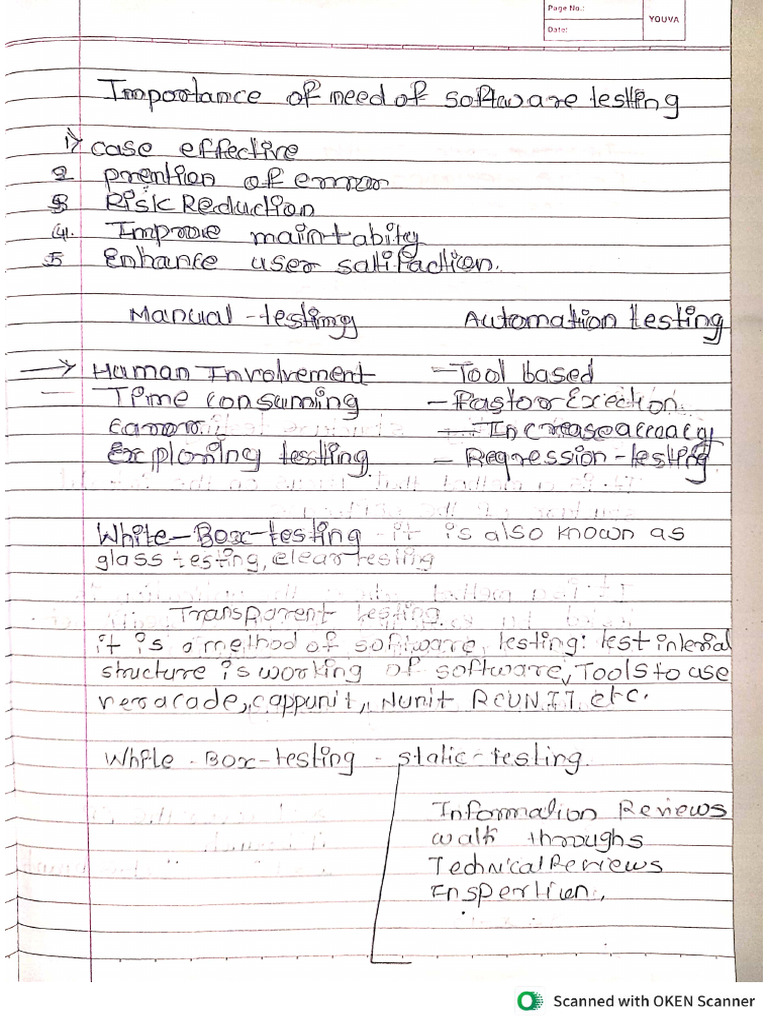 Page No.:
YOUVA
Date:
Importance of need of software testing
1) case effective
2 prention of error
3 Risk Reduction
4. Improve maintabity
5 Enhance user satifaction.
Manual-testing Automation testing
→ Human Involvement - Tool based
- Time consuming - Fastor Exection.
Earror - Increase accuacy
Exploring tessting - Regression-testing
White-Box-testing - it is also known as
glass testing, clear testing
Transparent testing
it is a method of software, testing: test interial
structure is working of software, Tools to use
veracade, cappunit, Nunit RCUNIT etc.
White - Box-testing - static-testing
Information Reviews
walk throughs
Technical Reviews
Insperttion.
Scanned with OKEN Scanner